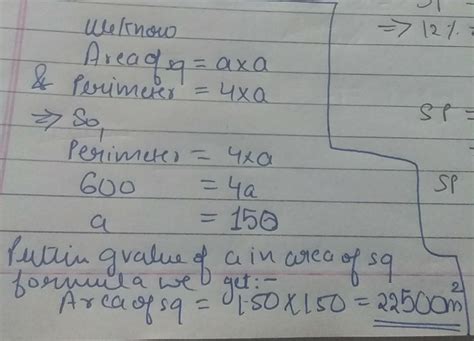 We know
Area of sq = a×a
& Perimeter = 4×a
⇒ So,
Perimeter = 4×a
600 = 4a
a = 150
Puttin g value of a in area of sq
formula we get:-
Area of sq = 150×150 = 22500m²
⇒ 12% =
SP =
SP